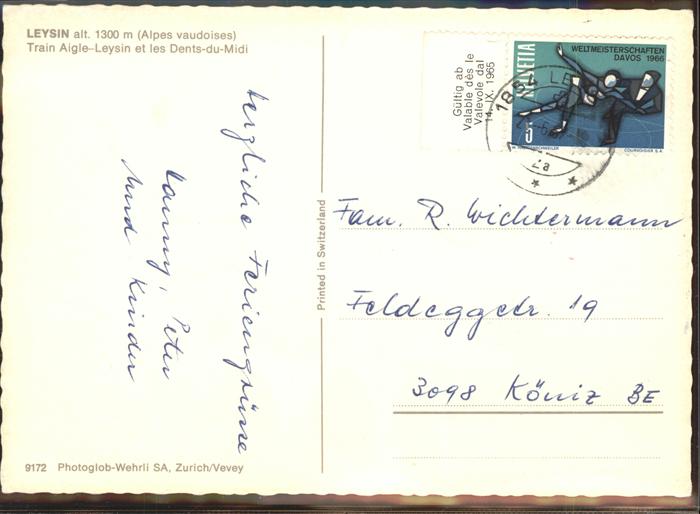 LEYSIN alt. 1300 m (Alpes vaudoises)
Train Aigle-Leysin et les Dents-du-Midi
herzliche Feriengrüsse
Peter
und Kinder
9172 Photoglob-Wehrli SA, Zurich/Vevey
Printed in Switzerland
Gültig ab
Valable dès le
Valevole dal
14. IX. 1965
HELVETIA
WELTMEISTERSCHAFTEN
DAVOS 1966
5
COURVOISIER S.A.
1854
2a
Fam. R. Wichtermann
Feldeggstr. 19
3098 Köniz BE